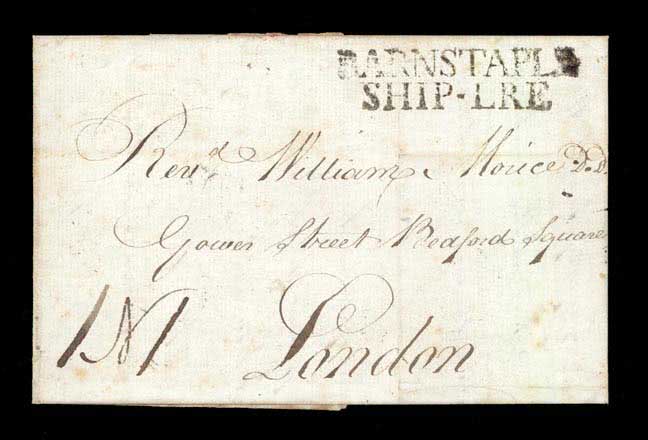 BARNSTAPLE
SHIP-LRE
Revd. William Morice D.D.
Gower Street Bedford Square
London